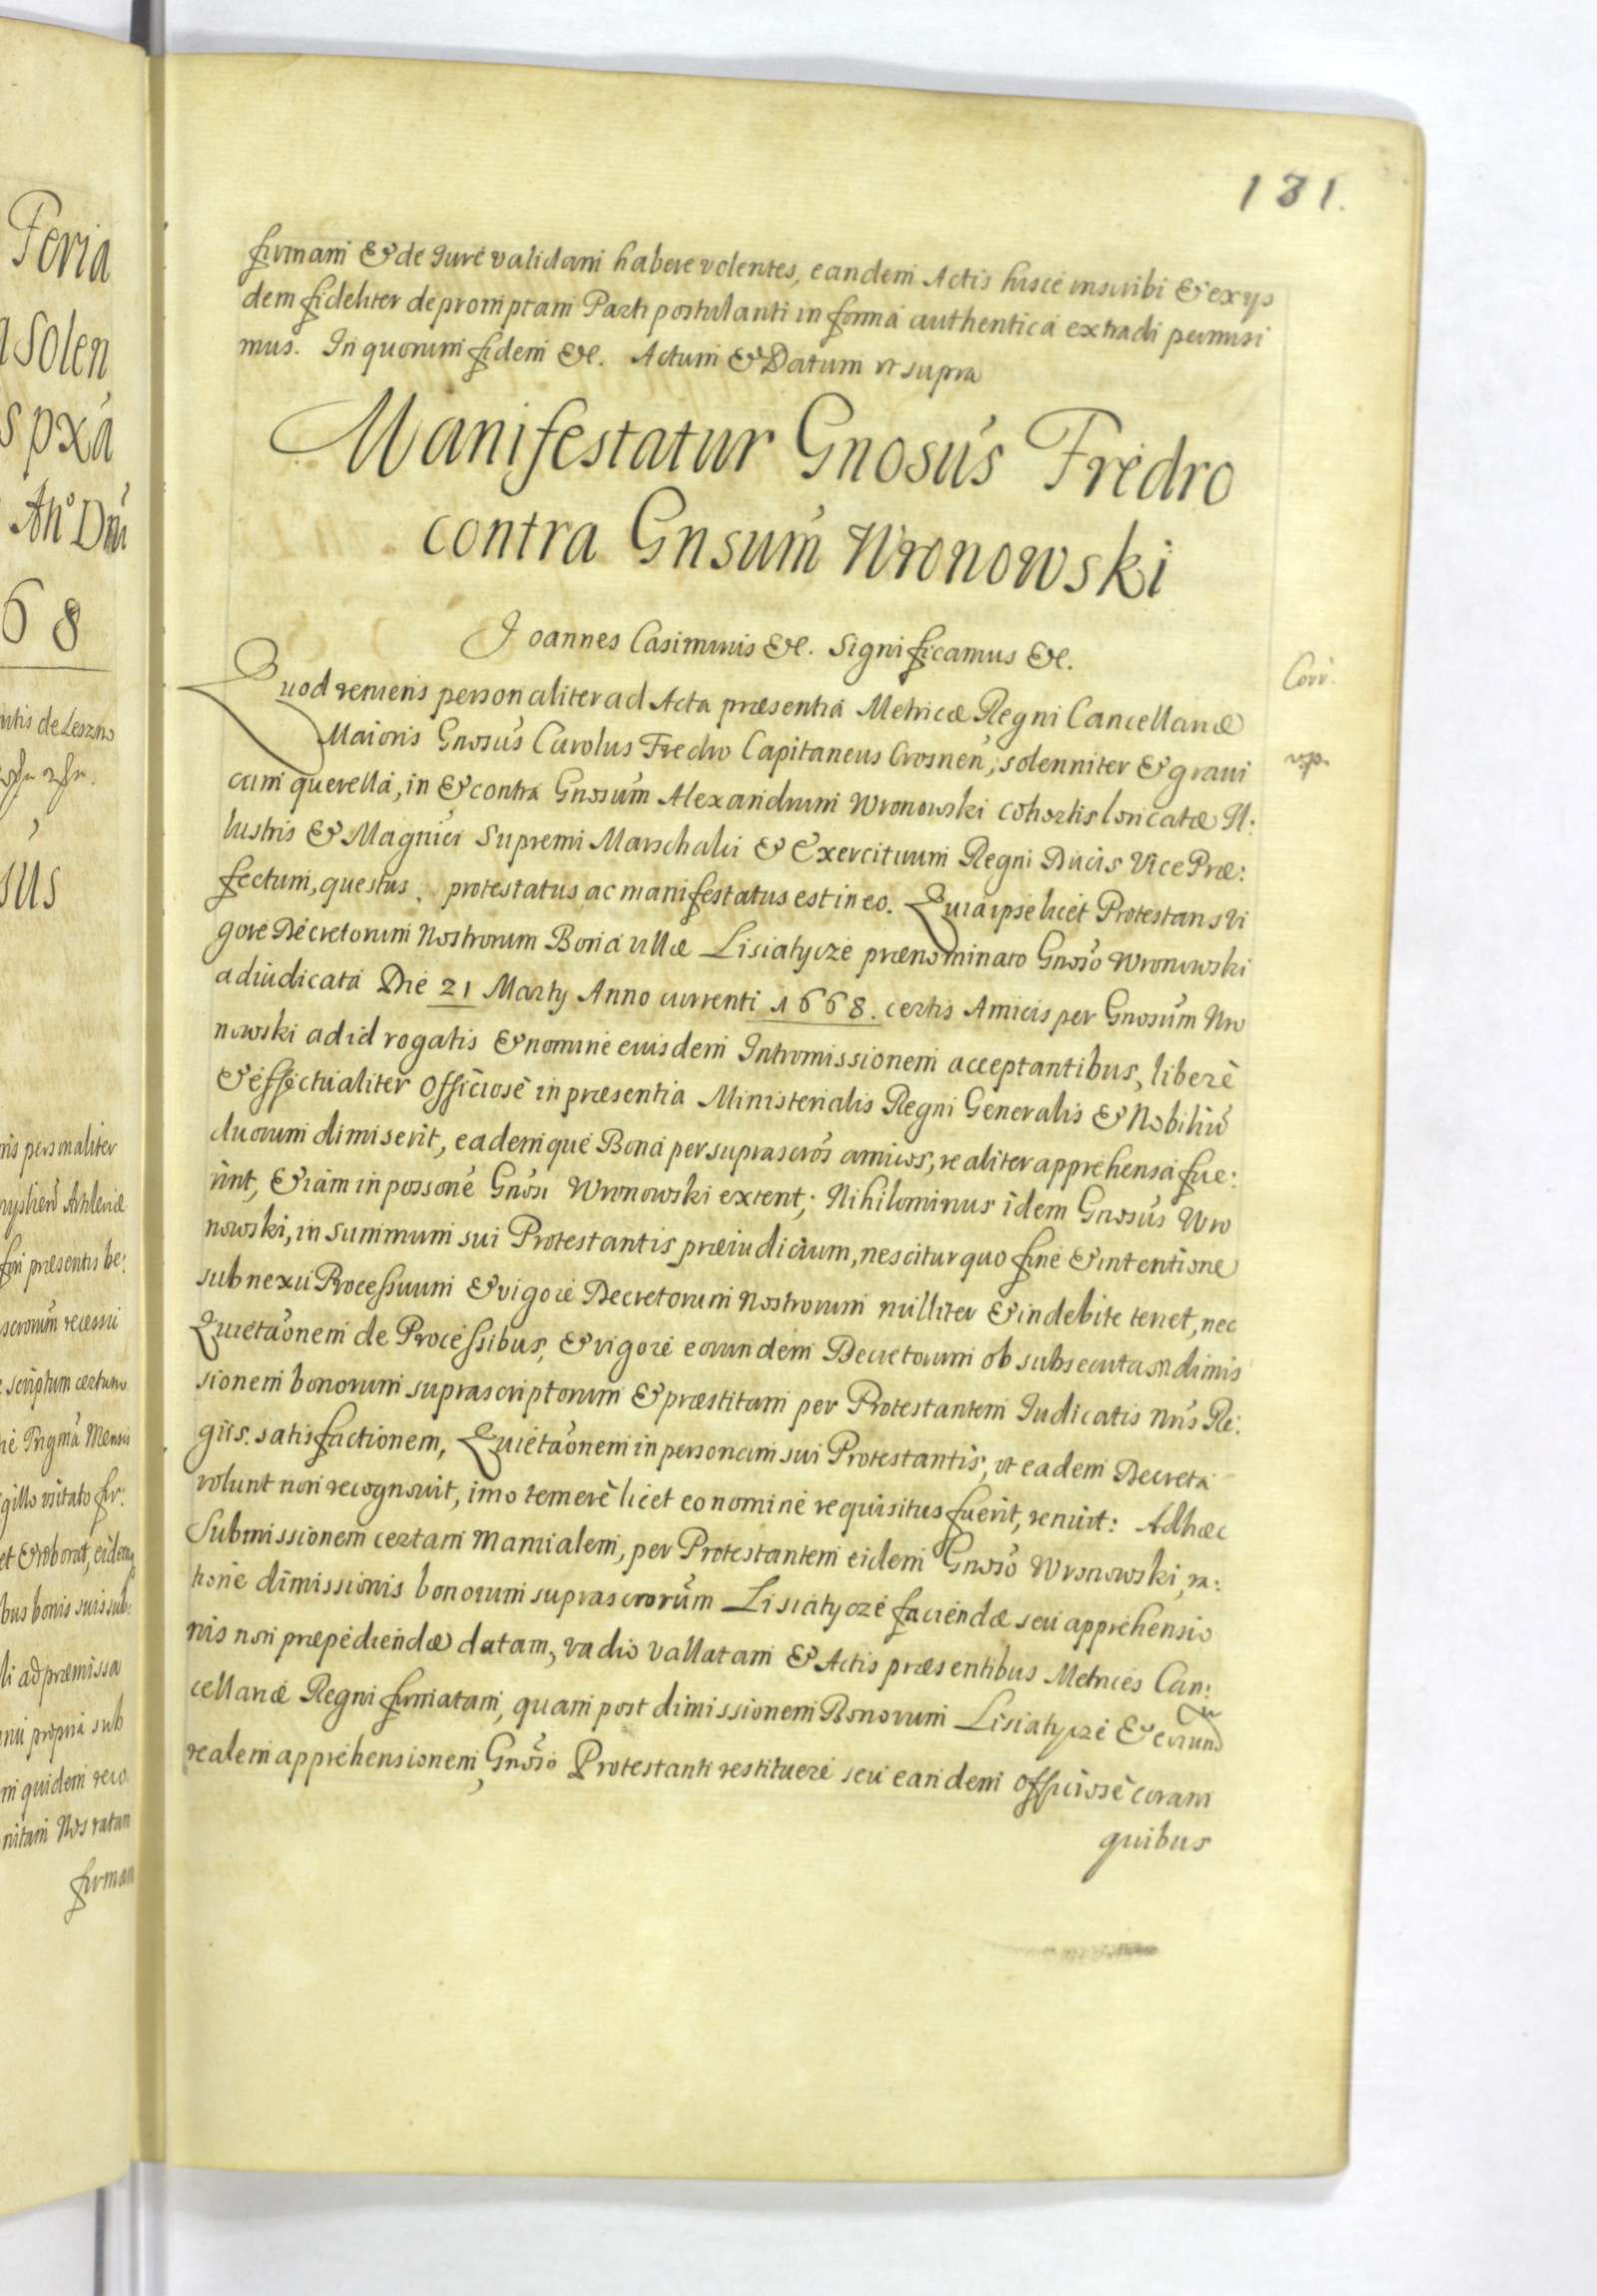 181.
firmam & de Jure validam habere volentes, eandem Actis hisce inscribi & exijs
dem fideliter depromptam Parti postulanti in formá authenticá extradi permisi
mus. In quorum fidem &c. Actum & Datum vt supra
Manifestatur Gnosus Fredro
contra Gnsum Wronowski
Joannes Casimirus &c. Significamus &c.
Quod veniens personaliter ad Acta præsentia Metricæ Regni Cancellariæ
Maioris Gnosus Carolus Fredro Capitaneus Crosnen, solenniter & graui
cum querellá, in & contra Gnosum Alexandrum Wronowski cohortis loricatæ Il:
lustris & Magnici Supremi Marschalci & Exercituum Regni Ducis Vice Præ:
fectum, questus, protestatus ac manifestatus est in eo. Quia ipse licet Protestans vi
gore Decretorum Nostrorum Bona villæ Lisiatycze prænominato Gnoso Wronowski
adiudicata Die 21 Martij Anno currenti 1668. certis Amicis per Gnosum Wro
nowski ad id rogatis & nomine eiusdem Intromissionem acceptantibus, liberè
& effectualiter officiosè in præsentia Ministerialis Regni Generalis & Nobiliu
duorum dimiserit, eademque Bona per suprascros amicos, realiter apprehensa fue:
rint, & iam in possone Gnosi Wronowski extent; Nihilominus idem Gnosus Wro
nowski, in summum sui Protestantis præiudicium, nescitur quo fine & intentione
sub nexu Processuum & vigore Decretorum Nostrorum nulliter & indebite tenet, nec
Quietaonem de Processibus, & vigore eorundem Decretorum ob subsecutam dimis
sionem bonorum suprascriptorum & præstitam per Protestantem Iudicatis Nris Re:
giis satisfactionem, Quietaonem in personam sui Protestantis, vt eadem Decreta
volunt non recognovit, imo temerè licet eo nomine requisitus fuerit, renuit: Adhæc
Submissionem certam Manualem, per Protestantem eidem Gnoso Wronowski, ra:
tione dimissionis bonorum suprascrorum Lisiatycze faciendæ seu apprehensio
nis non præpediendæ datam, vadio vallatam & Actis præsentibus Metrices Can:
cellariæ Regni firmatam, quam post dimissionem Bonorum Lisiatycze & eorund
realem apprehensionem, Gnoso Protestanti restituere seu eandem officiosè coram
quibus
Corr.
Feria
solen
s pxá
Ano Dni
68
de Leszno
sus
firmam